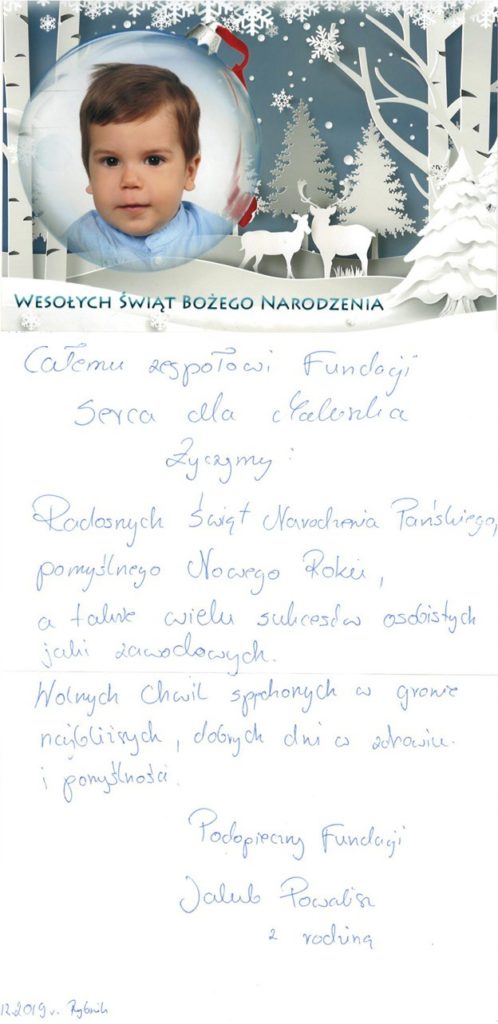 WESOŁYCH ŚWIĄT BOŻEGO NARODZENIA
Całemu zespołowi Fundacji
Serca dla Maluszka
Życzymy:
Radosnych Świąt Narodzenia Pańskiego,
pomyślnego Nowego Roku,
a także wielu sukcesów osobistych
jaki zawodowych.
Wolnych chwil spędzonych w gronie
najbliższych, dobrych dni w zdrowiu
i pomyślności.
Podopieczny Fundacji
Jakub Powalisz
z rodziną
12.2019 r. Rybnik